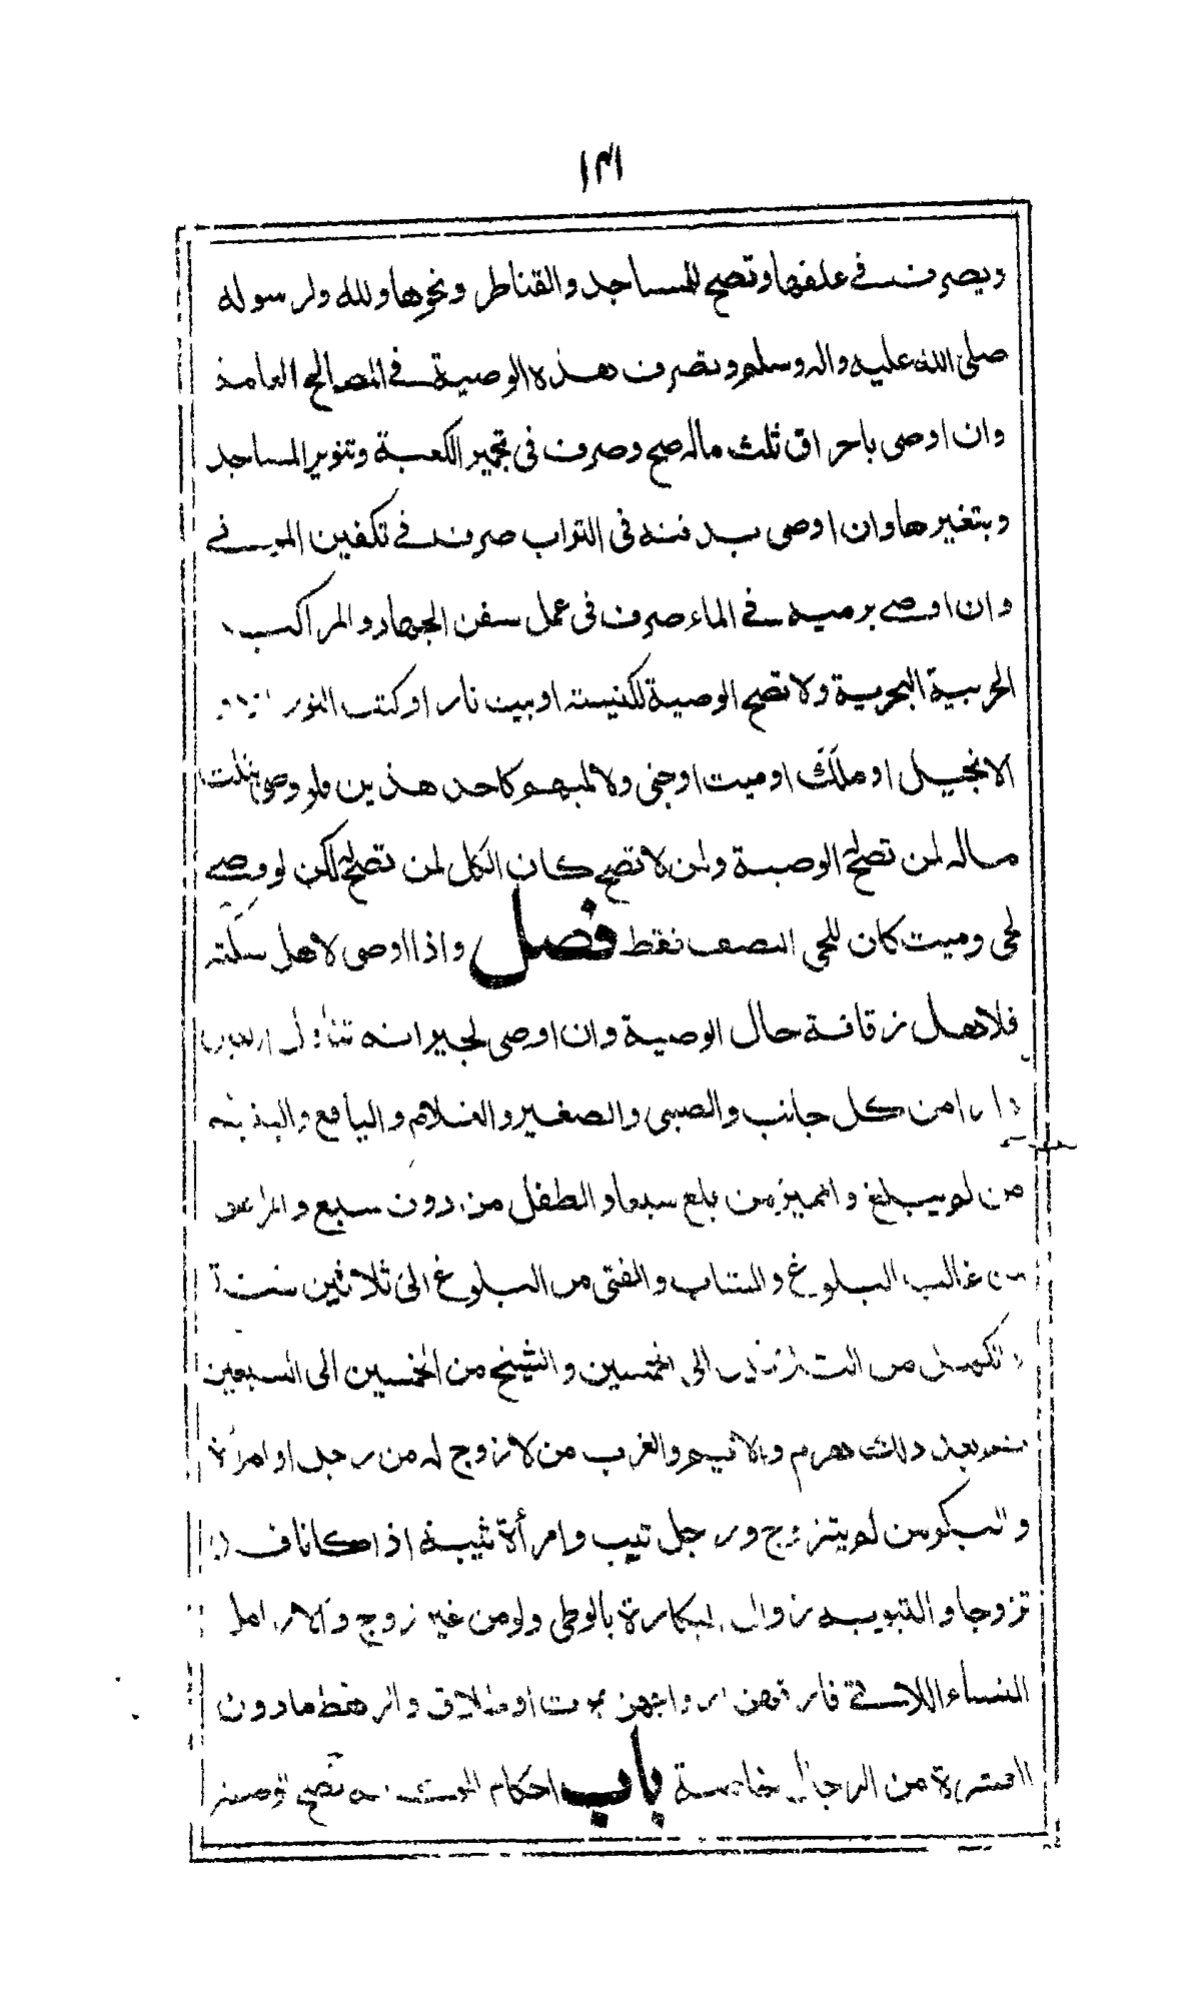 ١٣١
ويصرف في علفها وتصح للمساجد والقناطر ونحوها ولله ولرسوله
صلى الله عليه واله وسلم وتصرف هذه الوصية في المصالح العامة
وان اوصى باحراق ثلث ماله صح وصرف في تجمير الكعبة وتنوير المساجد
وبتغيرها وان اوصى بدفنه في التراب صرف في تكفين الموتى
وان اوصى برميه في الماء صرف في عمل سفن الجهاد والمراكب
الحربية البحرية ولا تصح الوصية لكنيسة او بيت نار او كتب التوراة و
الانجيل او ملك او ميت او جني ولا لمبهم كاحد هذين فلو وصى بثلث
ماله لمن تصح له الوصية ولمن لا تصح كان الكل لمن تصح له لكن لو وصى
لحي وميت كان للحي النصف فقط فصل واذا اوصى لاهل سكته
فلاهل زقاقه حال الوصية وان اوصى لجيرانه تناول اربعين
دارا من كل جانب والصبي والصغير والغلام واليافع واليتيم
من لم يبلغ والمميز من بلغ سبعا والطفل من دون سبع والمراهق
من غالب البلوغ والشاب والفتى من البلوغ الى ثلاثين سنة
والكهل من الثلاثين الى الخمسين والشيخ من الخمسين الى السبعين
ثم بعد ذلك هرم والايم والعزب من لا زوج له من رجل او امرأة
والبكر من لم يتزوج ورجل ثيب وامرأة ثيبة اذا كانا قد
تزوجا والثيوبه زوال البكارة بالوطى ولو من غير زوج والارامل
النساء اللاتي فارقهن ازواجهن بموت او طلاق والرهط مادون
العشرة من الرجال خاصة باب احكام الموصى تصح توصية